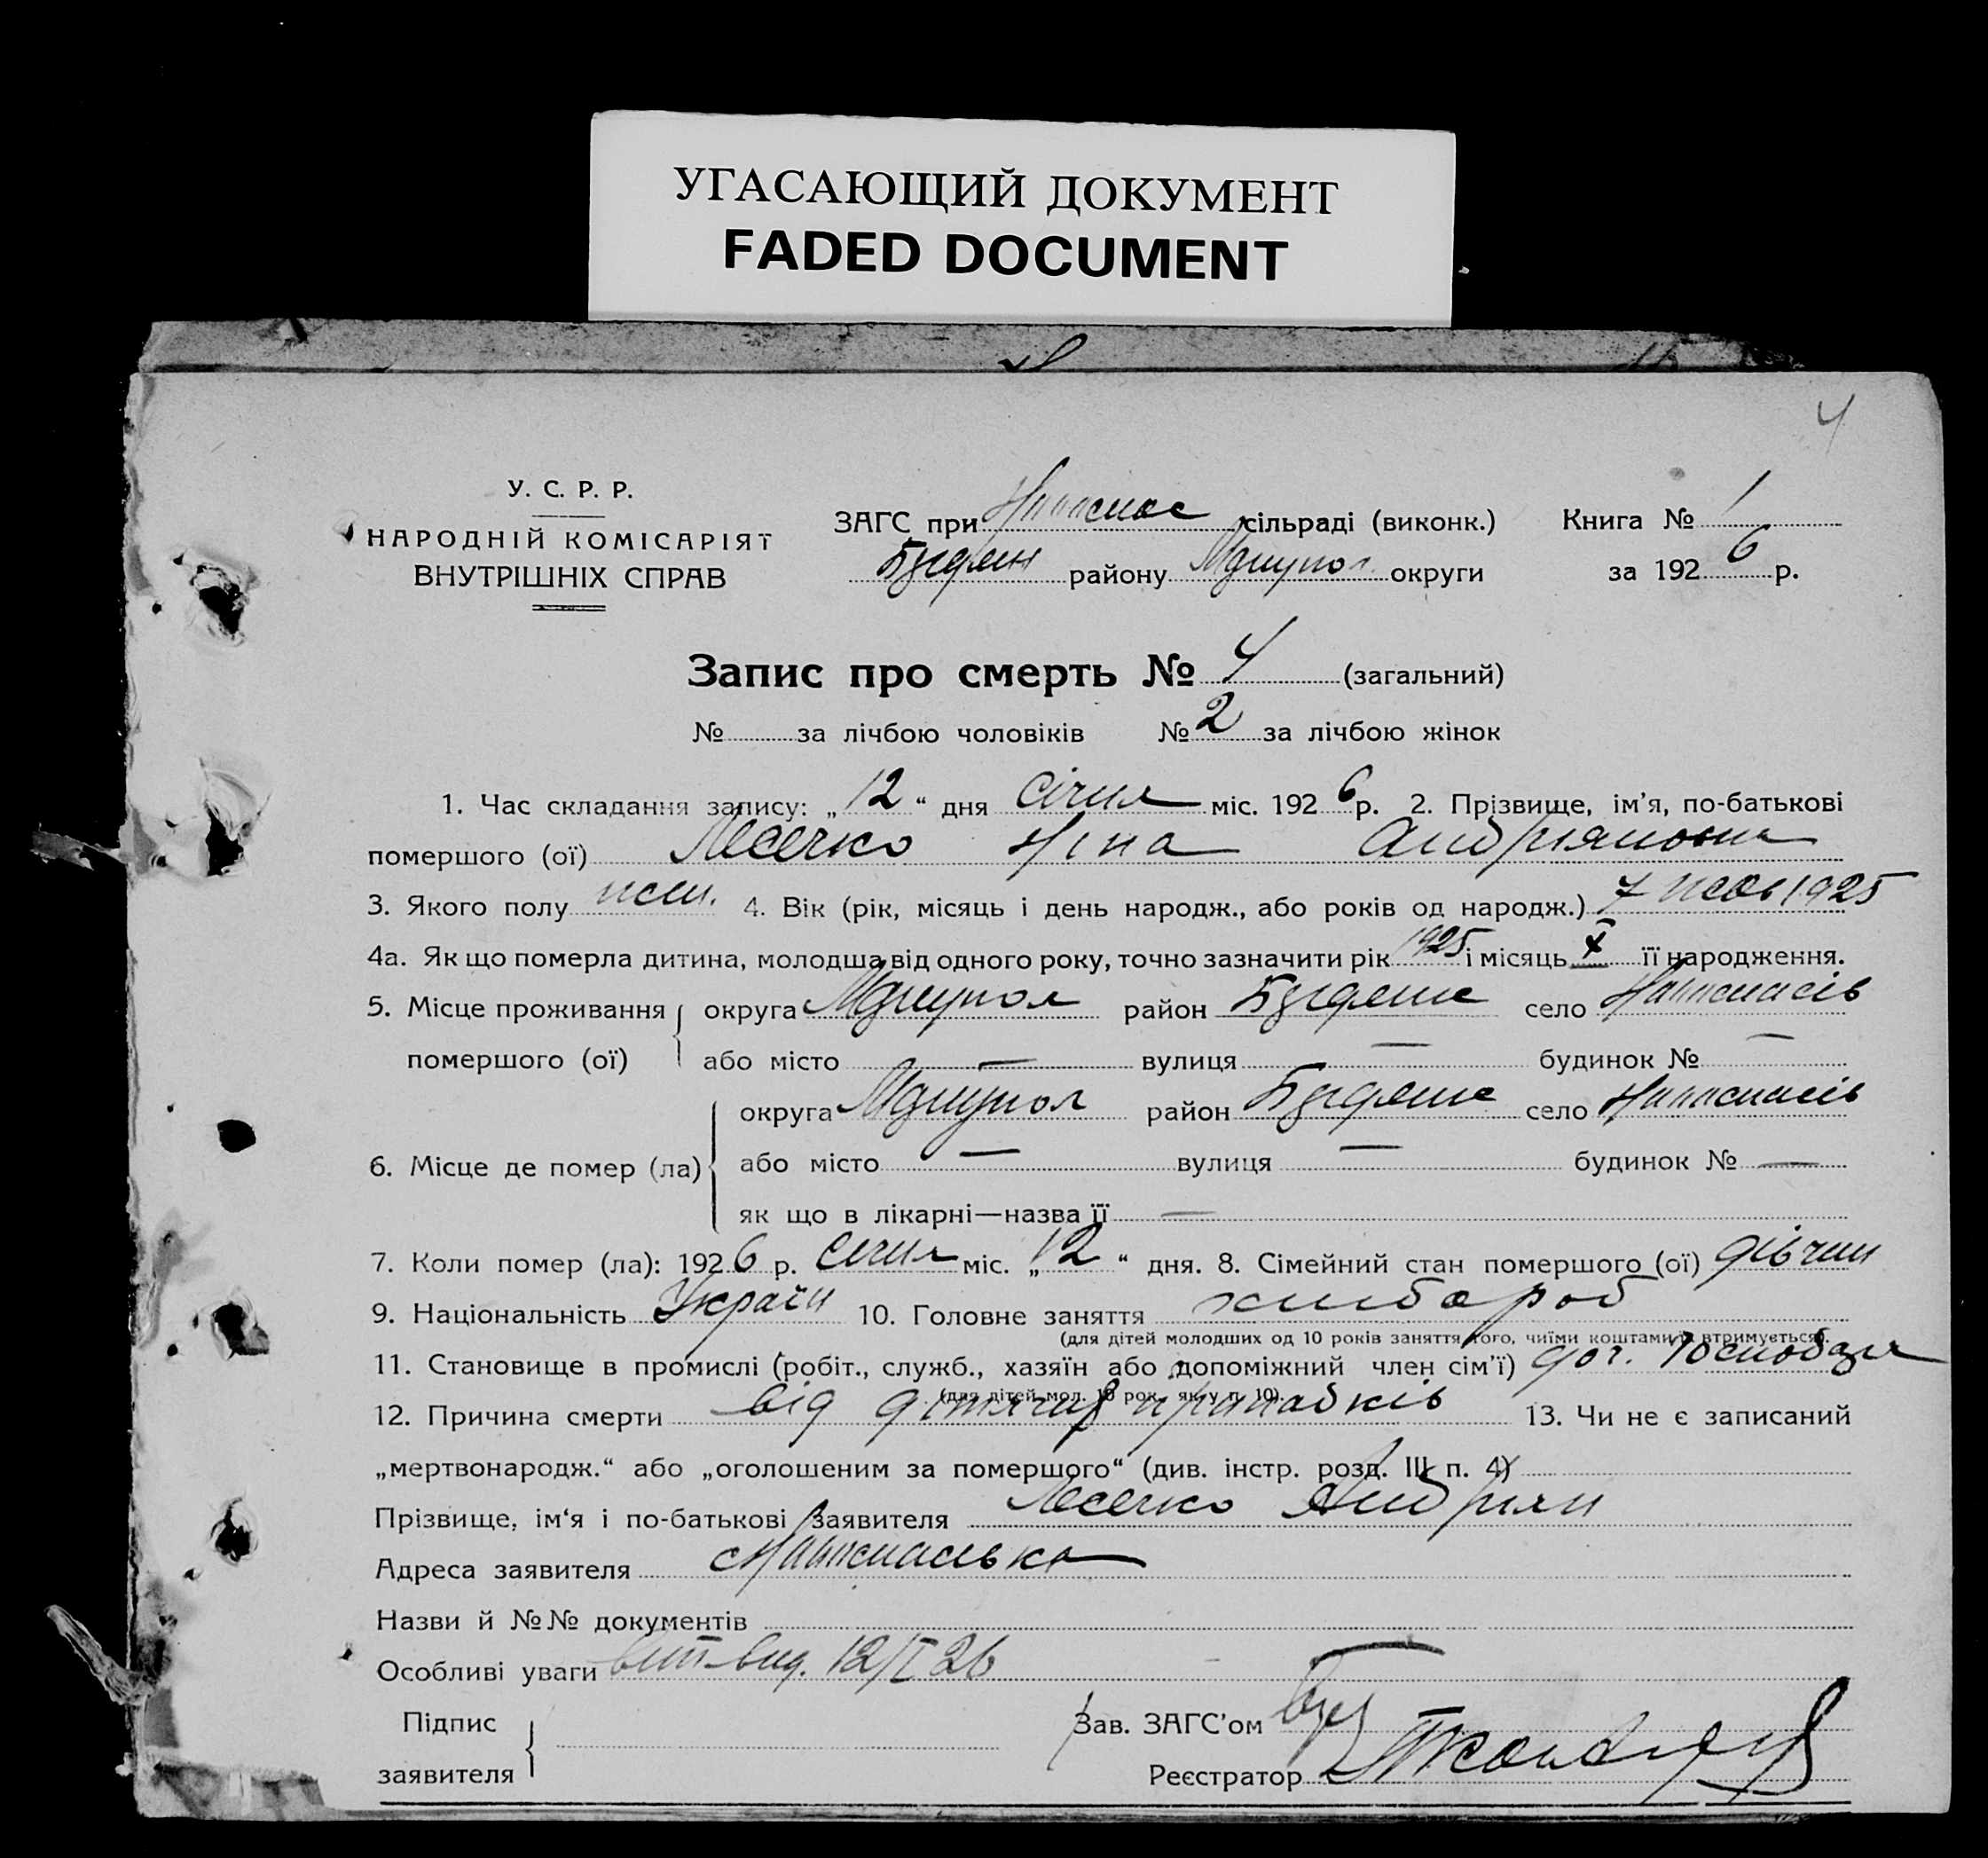 УГАСАЮЩИЙ ДОКУМЕНТ
FADED DOCUMENT
4
У. С. Р. Р.
НАРОДНІЙ КОМІСАРІЯТ
ВНУТРІШНІХ СПРАВ
ЗАГС при сільраді (виконк.)
району округи
Книга № 1
за 1926 р.
Запис про смерть № 4 (загальний)
№ за лічбою чоловіків № 2 за лічбою жінок
1. Час складання запису: „12“ дня Січня міс. 1926 р. 2. Прізвище, ім’я, по-батькові
помершого (ої) Лесечко Ніна Андріяновна
3. Якого полу жен. 4. Вік (рік, місяць і день народж., або років од народж.) 7 жов 1925
4а. Як що померла дитина, молодша від одного року, точно зазначити рік 1925 і місяць X її народження.
5. Місце проживання округа район село
помершого (ої) або місто — вулиця — будинок № —
округа район село
6. Місце де помер (ла) або місто — вулиця — будинок № —
як що в лікарні—назва її —
7. Коли помер (ла): 1926 р. Січня міс. „12“ дня. 8. Сімейний стан помершого (ої) дівчин
9. Національність Україн 10. Головне заняття хлібороб
(для дітей молодших од 10 років заняття того, чиїми коштами втримується).
11. Становище в промислі (робіт., служб., хазяїн або допоміжний член сім’ї) доч. господаря
(для дітей мол. 10 рок. як у п. 10)
12. Причина смерти від дитячих припадків 13. Чи не є записаний
„мертвонародж.“ або „оголошеним за помершого“ (див. інстр. розд. III п. 4)
Прізвище, ім‘я і по-батькові заявителя Лесечко Андріян
Адреса заявителя
Назви й №№ документів
Особливі уваги вит. вид. 12/I 26
Підпис
заявителя
Зав. ЗАГС’ом
Реєстратор